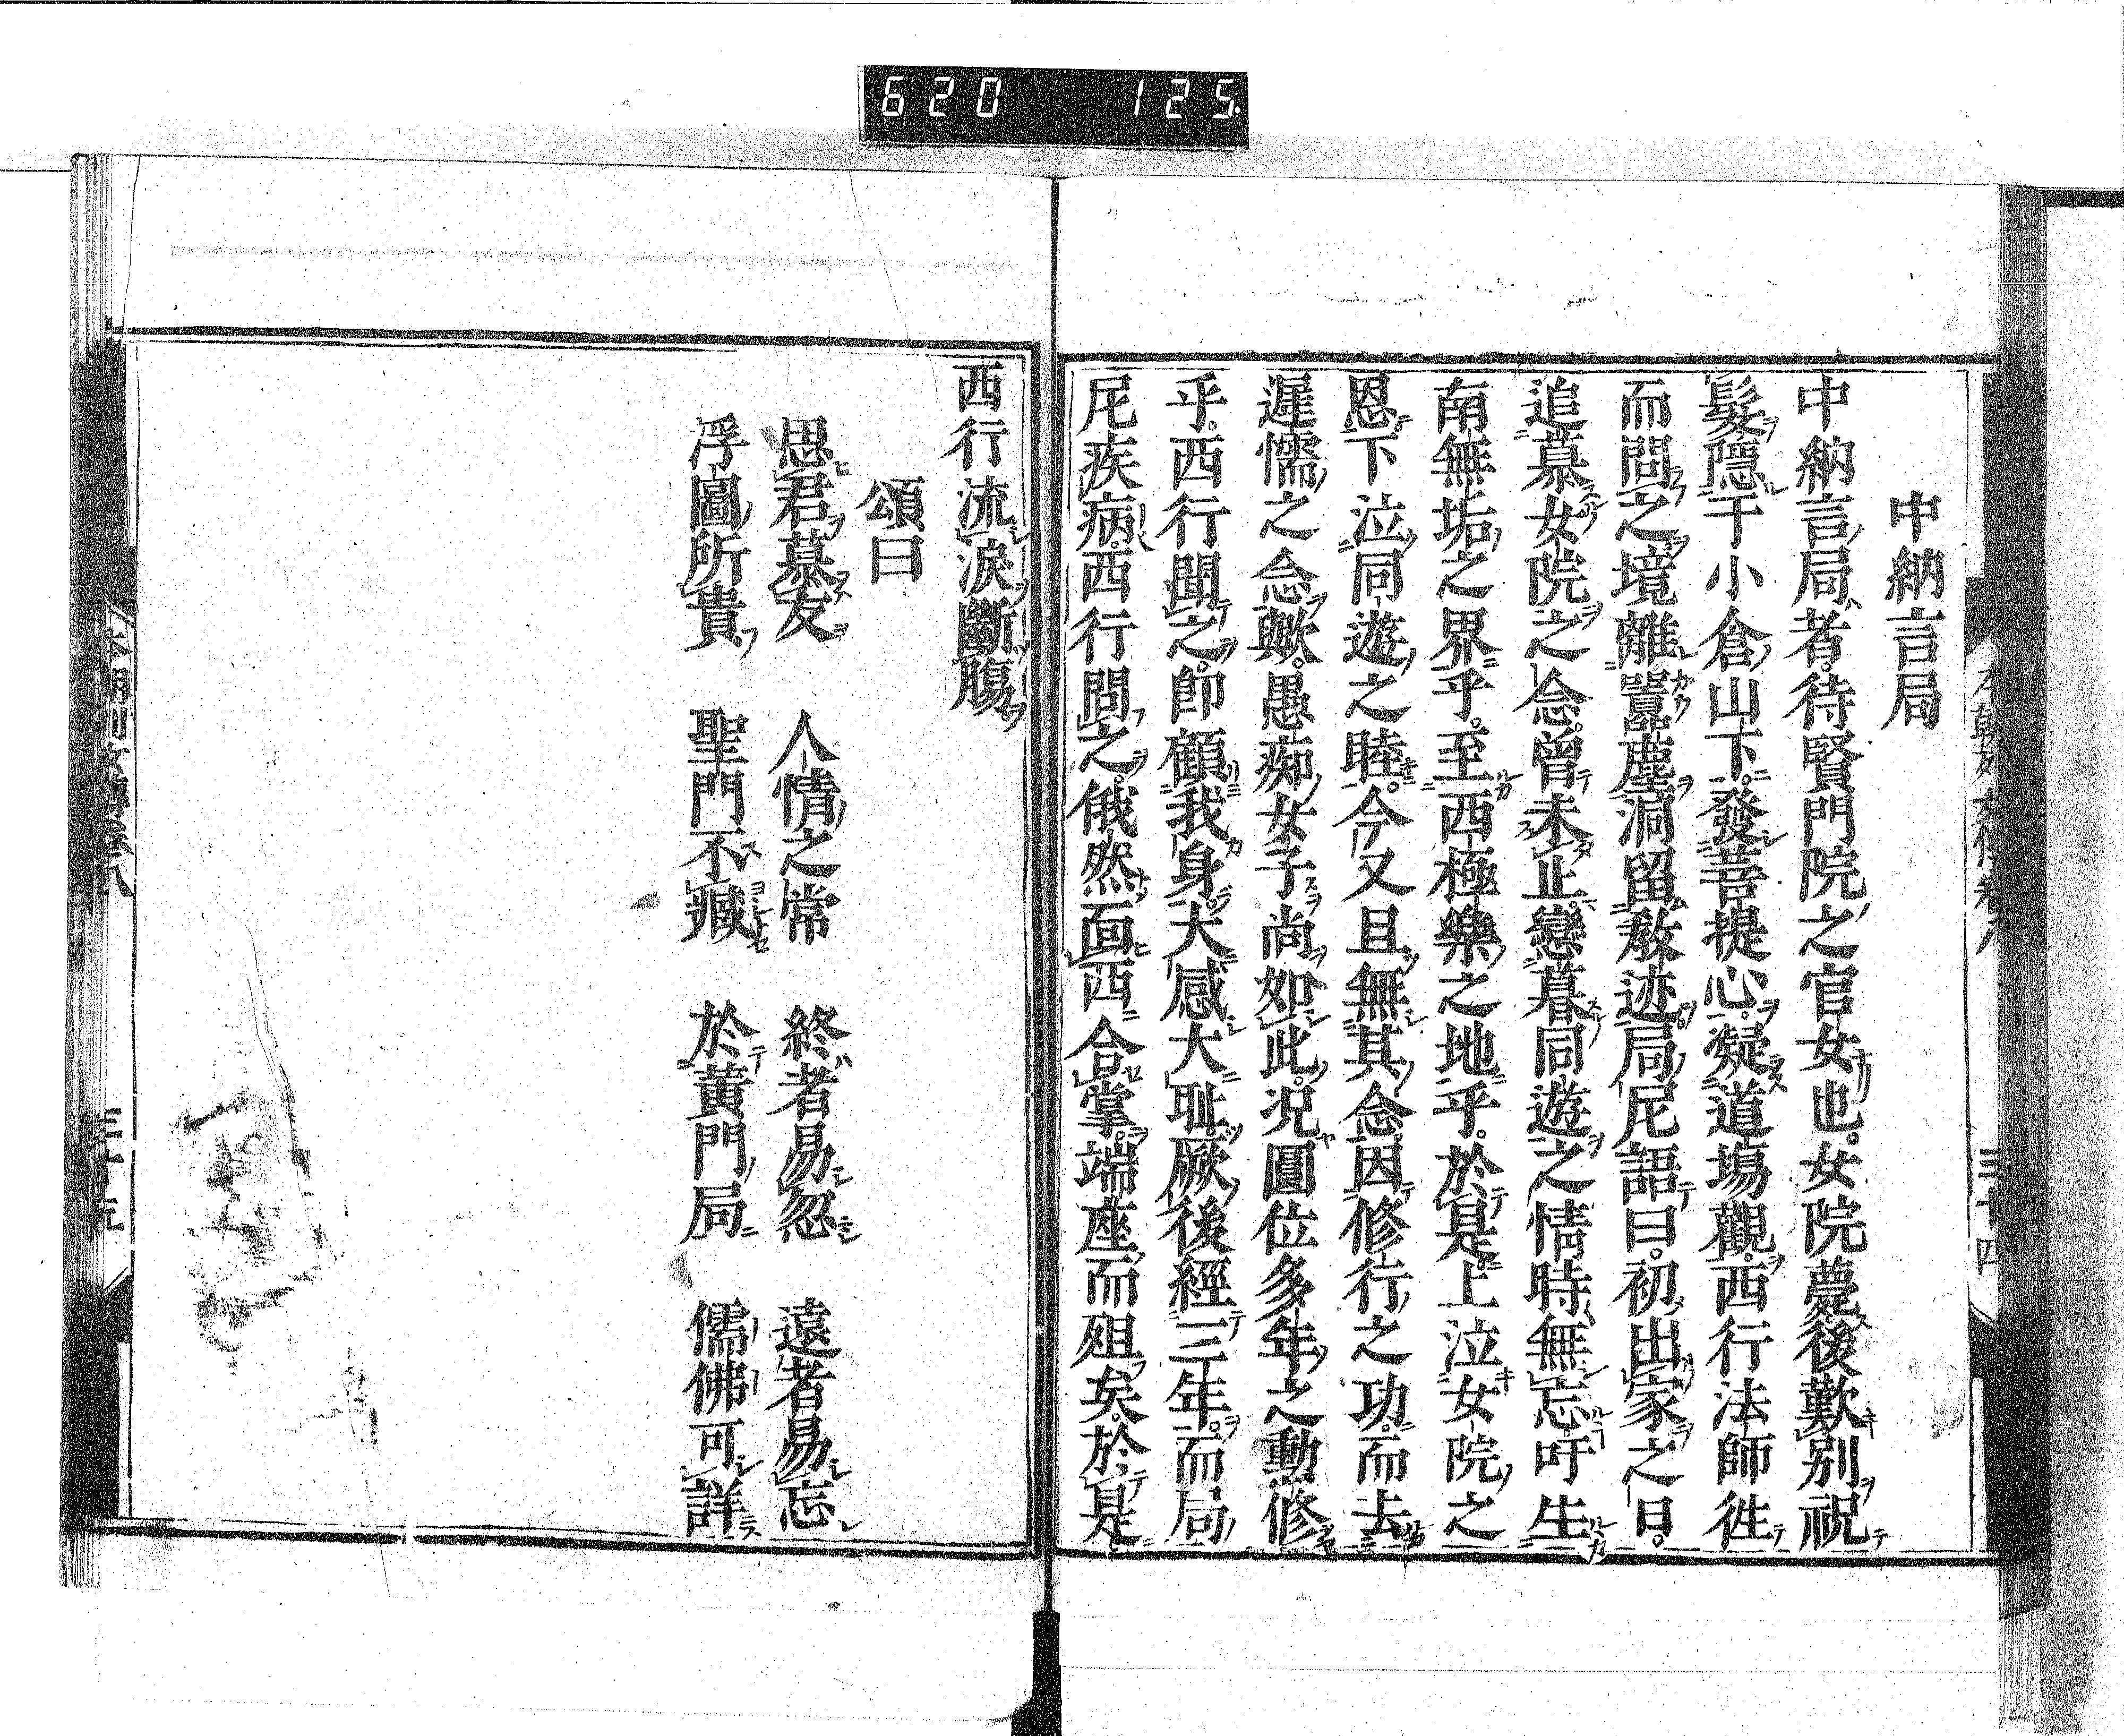 620 125
中納言局
中納言局者。待賢門院之官女也。女院薨後歎別祝
髮隱于小倉山下。發菩提心。凝道塲觀。西行法師徃
而問之境離囂塵洞留敎迹局尼語曰。初出家之日。
追慕女院之念。曾未止。戀暮同遊之情時無忘吁生
南無垢之界乎。至西極樂之地乎。於是。上泣女院之
恩下泣同遊之睦。今又且無其念。因修行之功。而去
遲懦之念歟。愚痴女子尚如此。况圓位多年之勤修
乎。西行聞之。卽顧我身。大感大耻。厥後經三年。而局
尼疾病。西行問之。俄然面西合掌。端座而殂矣。於是
西行流淚斷膓
頌曰
思君慕友 人情之常 終者易忽 遠者易忘
浮圖所貴 聖門不臧 於黃門局 儒佛可詳